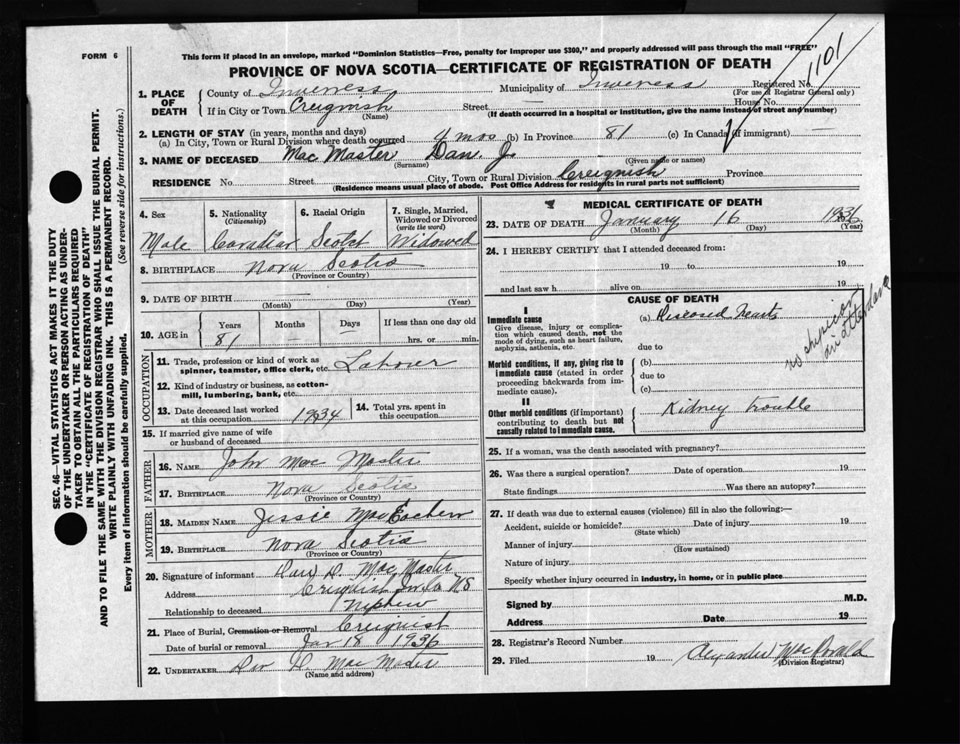 FORM 6
This form if placed in an envelope, marked "Dominion Statistics—Free, penalty for improper use $300," and properly addressed will pass through the mail "FREE"
PROVINCE OF NOVA SCOTIA—CERTIFICATE OF REGISTRATION OF DEATH
1101
1. PLACE OF DEATH
County of Inverness Municipality of Inverness Registered No.
(For use of Registrar General only)
If in City or Town Creignish Street — House No.
(Name) (If death occurred in a hospital or institution, give the name instead of street and number)
2. LENGTH OF STAY (in years, months and days)
(a) In City, Town or Rural Division where death occurred 4 mos (b) In Province 81 (c) In Canada (if immigrant) —
3. NAME OF DECEASED Mac Master Dan. J.
(Surname) (Given name or names)
RESIDENCE No. Street City, Town or Rural Division Creignish Province
(Residence means usual place of abode. Post Office Address for residents in rural parts not sufficient)
4. Sex 5. Nationality (Citizenship) 6. Racial Origin 7. Single, Married, Widowed or Divorced (write the word)
Male Canadian Scotch Widowed
8. BIRTHPLACE Nova Scotia
(Province or Country)
9. DATE OF BIRTH
(Month) (Day) (Year)
10. AGE in Years Months Days If less than one day old
81 — hrs. or min.
OCCUPATION
11. Trade, profession or kind of work as spinner, teamster, office clerk, etc. Laborer
12. Kind of industry or business, as cotton-mill, lumbering, bank, etc.
13. Date deceased last worked at this occupation 1934 14. Total yrs. spent in this occupation
15. If married give name of wife or husband of deceased
FATHER
16. NAME John Mac Master
17. BIRTHPLACE Nova Scotia
(Province or Country)
MOTHER
18. MAIDEN NAME Jessie MacEachern
19. BIRTHPLACE Nova Scotia
(Province or Country)
20. Signature of informant Dan D. Mac Master
Address Creignish Inv. Co N S
Relationship to deceased Nephew
21. Place of Burial, Cremation or Removal Creignish
Date of burial or removal Jan 18 1936
22. UNDERTAKER Dan D Mac Master
(Name and address)
MEDICAL CERTIFICATE OF DEATH
23. DATE OF DEATH January 16 1936
(Month) (Day) (Year)
24. I HEREBY CERTIFY that I attended deceased from:
19 to 19
and last saw h alive on 19
CAUSE OF DEATH
I
Immediate cause
Give disease, injury or complication which caused death, not the mode of dying, such as heart failure, asphyxia, asthenia, etc.
(a) Diseased heart
due to
Morbid conditions, if any, giving rise to immediate cause (stated in order proceeding backwards from immediate cause).
(b)
due to
(c)
II
Other morbid conditions (if important) contributing to death but not causally related to immediate cause.
Kidney trouble
no physician in attendance
25. If a woman, was the death associated with pregnancy?
26. Was there a surgical operation? Date of operation 19
State findings Was there an autopsy?
27. If death was due to external causes (violence) fill in also the following:—
Accident, suicide or homicide? Date of injury 19
(State which)
Manner of injury
(How sustained)
Nature of injury
Specify whether injury occurred in industry, in home, or in public place
Signed by M.D.
Address Date 19
28. Registrar's Record Number
29. Filed 19 Alexander MacDonald
(Division Registrar)
SEC. 46—VITAL STATISTICS ACT MAKES IT THE DUTY
OF THE UNDERTAKER OR PERSON ACTING AS UNDER-
TAKER TO OBTAIN ALL THE PARTICULARS REQUIRED
IN THE "CERTIFICATE OF REGISTRATION OF DEATH"
AND TO FILE THE SAME WITH THE DIVISION REGISTRAR WHO SHALL ISSUE THE BURIAL PERMIT.
WRITE PLAINLY WITH UNFADING INK. THIS IS A PERMANENT RECORD.
Every item of information should be carefully supplied. (See reverse side for instructions.)